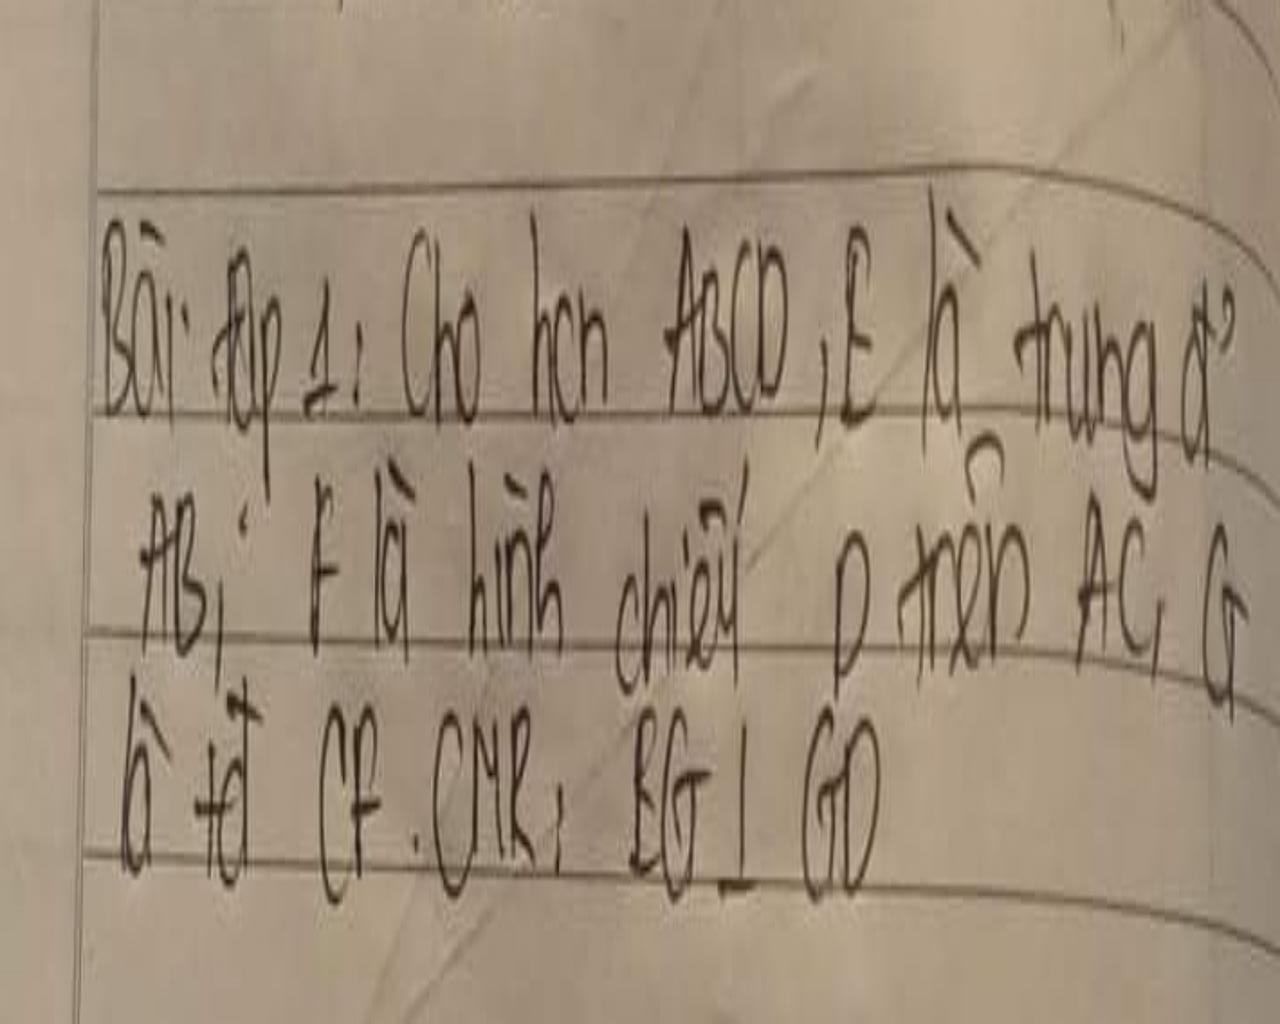 Bài tập 1: Cho hcn ABCD, E là trung đ'
AB, F là hình chiếu D trên AC, G
là tđ CF. CMR: EG ⊥ GD